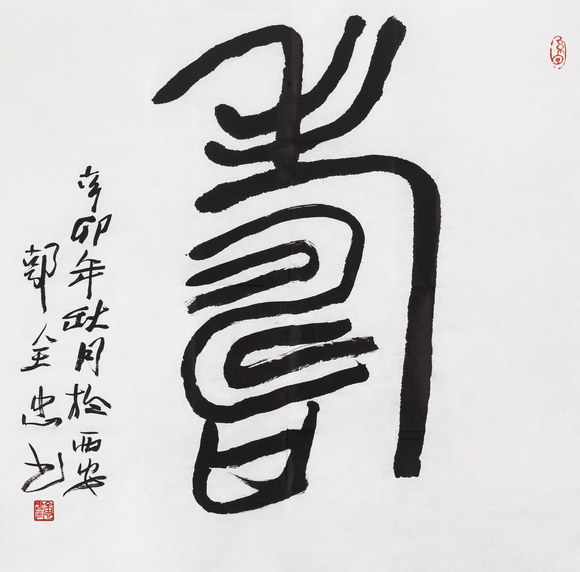 壽
辛卯年秋月於西安
郭全忠书